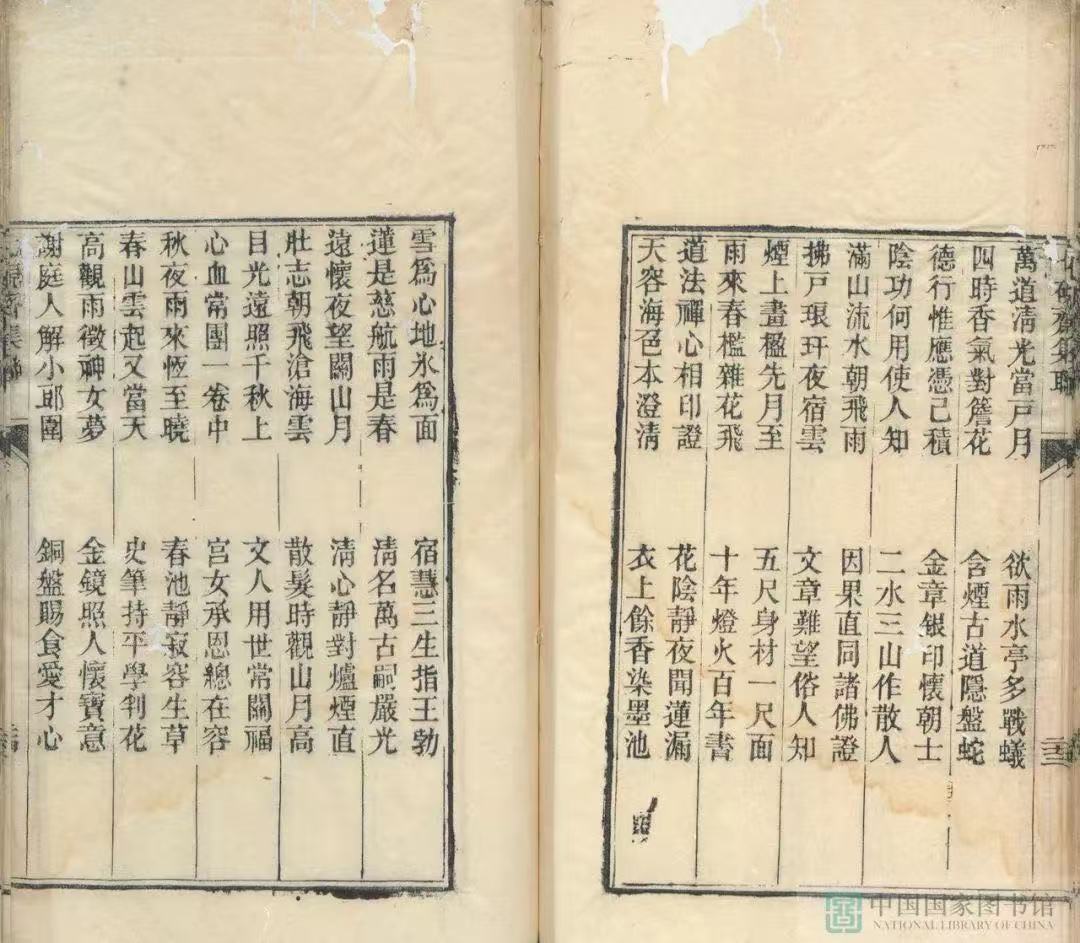 萬道清光當戸月　欲雨水亭多戰蟻
四時香氣對簷花　含煙古道隱盤蛇
德行惟應憑己積　金章銀印懷朝士
陰功何用使人知　二水三山作散人
滿山流水朝飛雨　因果直同諸佛證
拂戸琅玕夜宿雲　文章難望俗人知
煙上畫楹先月至　五尺身材一尺面
雨來春檻雜花飛　十年燈火百年書
道法禪心相印證　花陰靜夜聞蓮漏
天容海色本澄清　衣上餘香染墨池
雪爲心地氷爲面　宿慧三生指王勃
蓮是慈航雨是春　清名萬古嗣嚴光
遠懷夜望關山月　清心靜對爐煙直
壯志朝飛滄海雲　散髮時觀山月高
目光遠照千秋上　文人用世常關福
心血常團一卷中　宮女承恩總在容
秋夜雨來恆至曉　春池靜寂容生草
春山雲起又當天　史筆持平學判花
高觀雨徵神女夢　金鏡照人懷寶意
謝庭人解小郎圍　銅盤賜食愛才心
中国国家图书馆
NATIONAL LIBRARY OF CHINA